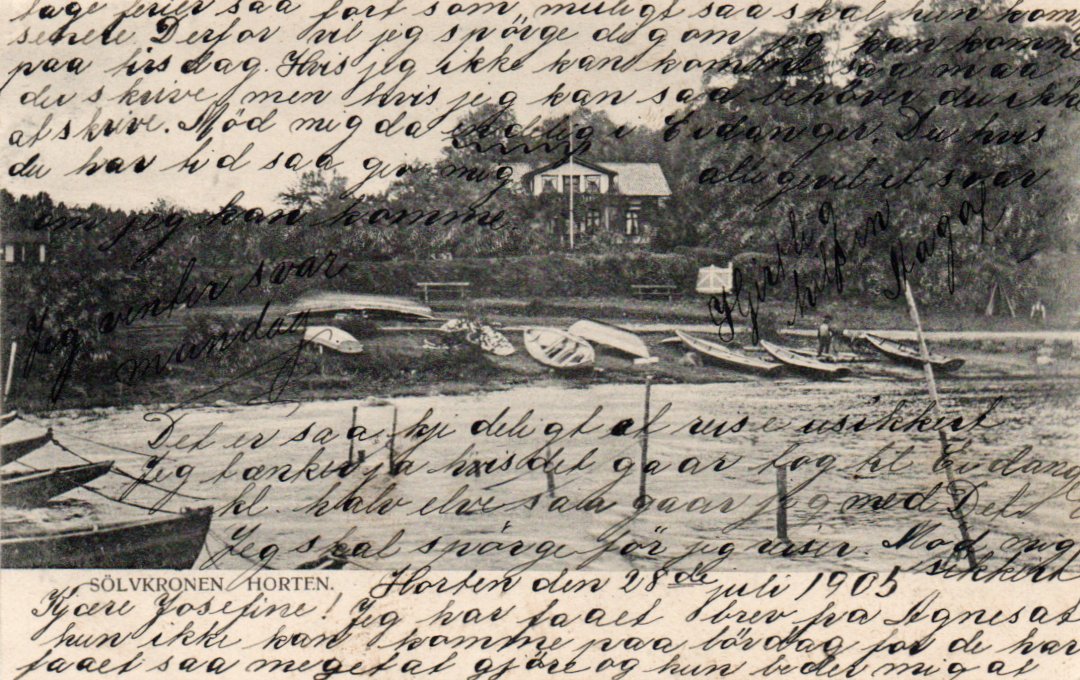 SÖLVKRONEN HORTEN.
Horten den 28de juli 1905
Kjære Josefine! Jeg har faaet brev fra Agnes at
hun ikke kan komme paa lördag for de har
faaet saa meget at gjöre og hun beder mig at
tage ferier saa fort som muligt saa skal hun kom
senere. Derfor vil jeg spörge dig om jeg kan komme
paa tirsdag. Hvis jeg ikke kan komme saa maa
du skrive, men hvis jeg kan saa behöver du ikke
at skrive. Mød mig da endelig i Eidanger. Du hvis
du har tid saa giv mig svar
om jeg kan komme.
Jeg venter svar
mandag
Hjertelig
hilsen
Aagot
Det er saa kjedeligt at reise usikkert
Jeg tænker ja hvis det gaar tog til Eidang
kl. halv elve saa gaar jeg med Det
Jeg skal spörge för jeg reiser. Mød mig
sikkert